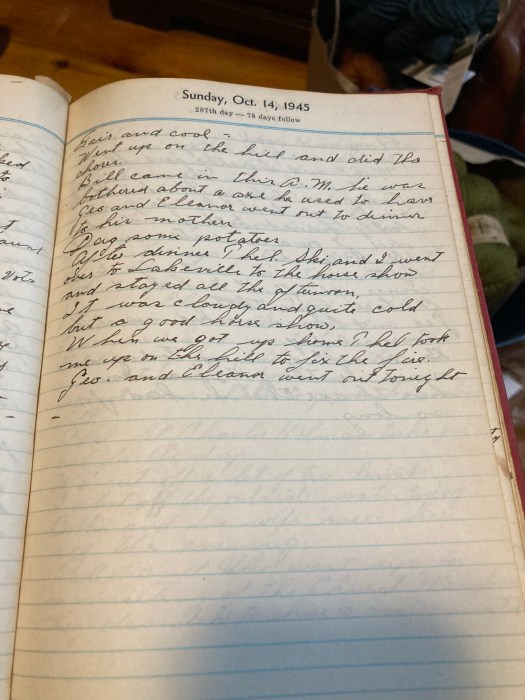 Sunday, Oct. 14, 1945
287th day — 78 days follow
Fair and cool -
Went up on the hill and did the
chores.
Bill came in this A.M. he was
bothered about a axe he used to have
Geo and Eleanor went out to dinner
to his mothers
Dug some potatoes
After dinner Thel. Ski and I went
over to Lakeville to the horse show
and stayed all the afternoon,
It was cloudy and quite cold
but a good horse show.
When we got up home Thel took
me up on the hill to fix the fire.
Geo. and Eleanor went out tonight
-